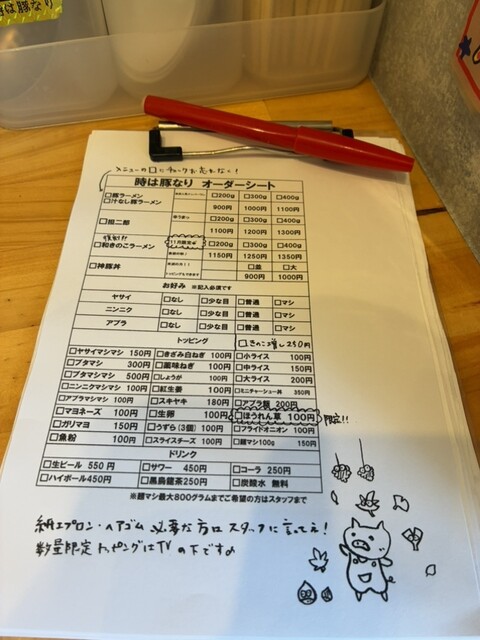 時は豚なり
メニューの□にチェックお忘れなく!
時は豚なり オーダーシート
□豚ラーメン □200g □300g □400g
□汁なし豚ラーメン 900円 1000円 1100円
□担二郎 □200g □300g □400g
1100円 1200円 1300円
復刻!! 11月限定
□和きのこラーメン □200g □300g □400g
1150円 1250円 1350円
□神豚丼 □並 □大
トッピングもできます 900円 1000円
お好み ※記入必須です
ヤサイ □なし □少な目 □普通 □マシ
ニンニク □なし □少な目 □普通 □マシ
アブラ □なし □少な目 □普通 □マシ
トッピング □きのこ増し250円
□ヤサイマシマシ 150円 □きざみ白ねぎ 100円 □小ライス 100円
□ブタマシ 300円 □薬味ねぎ 100円 □中ライス 150円
□ブタマシマシ 500円 □しょうが 100円 □大ライス 200円
□ニンニクマシマシ 100円 □紅生姜 100円 □ミニチャーシュー丼 350円
□アブラマシマシ 100円 □スキヤキ 180円 □アブラ麺 200円
□マヨネーズ 100円 □生卵 100円 □ほうれん草 100円 限定!!
□ガリマヨ 150円 □うずら(3個) 100円 □フライドオニオン 100円
□魚粉 100円 □スライスチーズ 100円 □麺マシ100g 150円
ドリンク
□生ビール 550円 □サワー 450円 □コーラ 250円
□ハイボール450円 □黒烏龍茶250円 □炭酸水 無料
※麺マシ最大800グラムまでご希望の方はスタッフまで
紙エプロン・ヘアゴム 必要な方は スタッフに言ってえ!
数量限定トッピングはTVの下ですよ